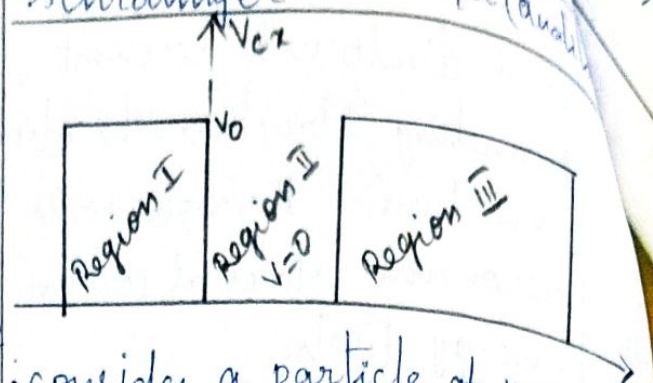 V(x)
V0
Region I
Region II
V=0
Region III
consider a particle of